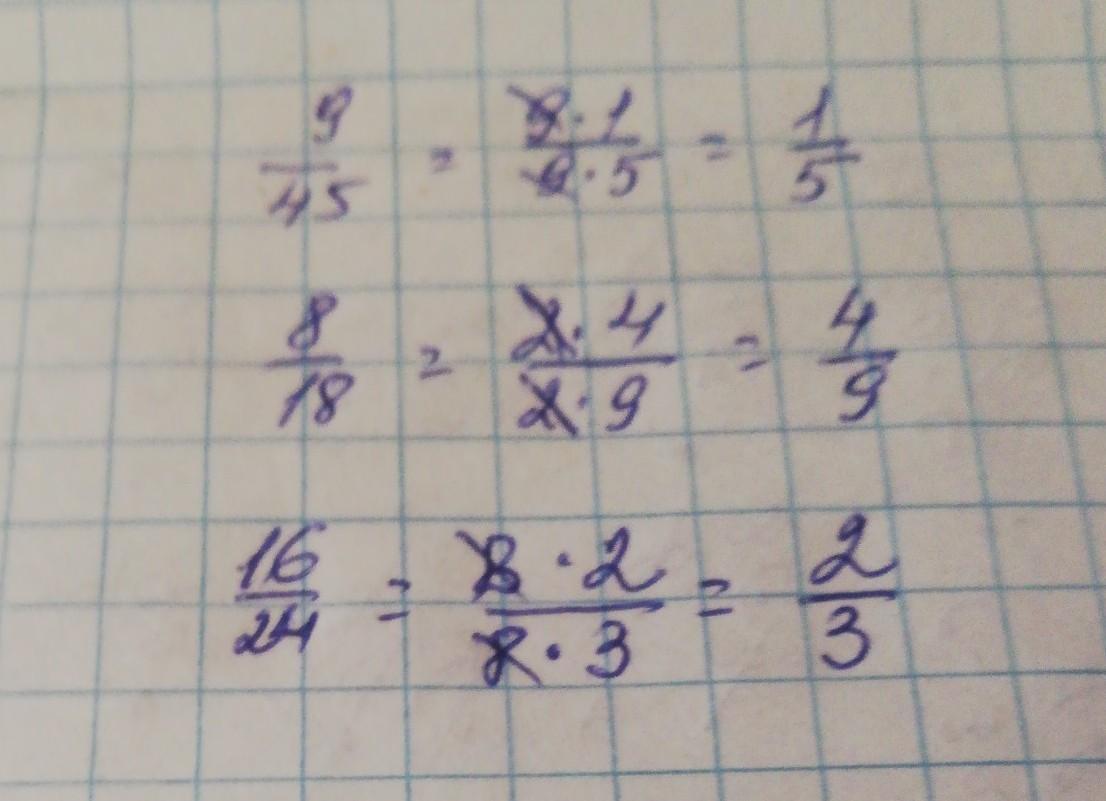 9/45 = 9·1/9·5 = 1/5
8/18 = 2·4/2·9 = 4/9
16/24 = 8·2/8·3 = 2/3